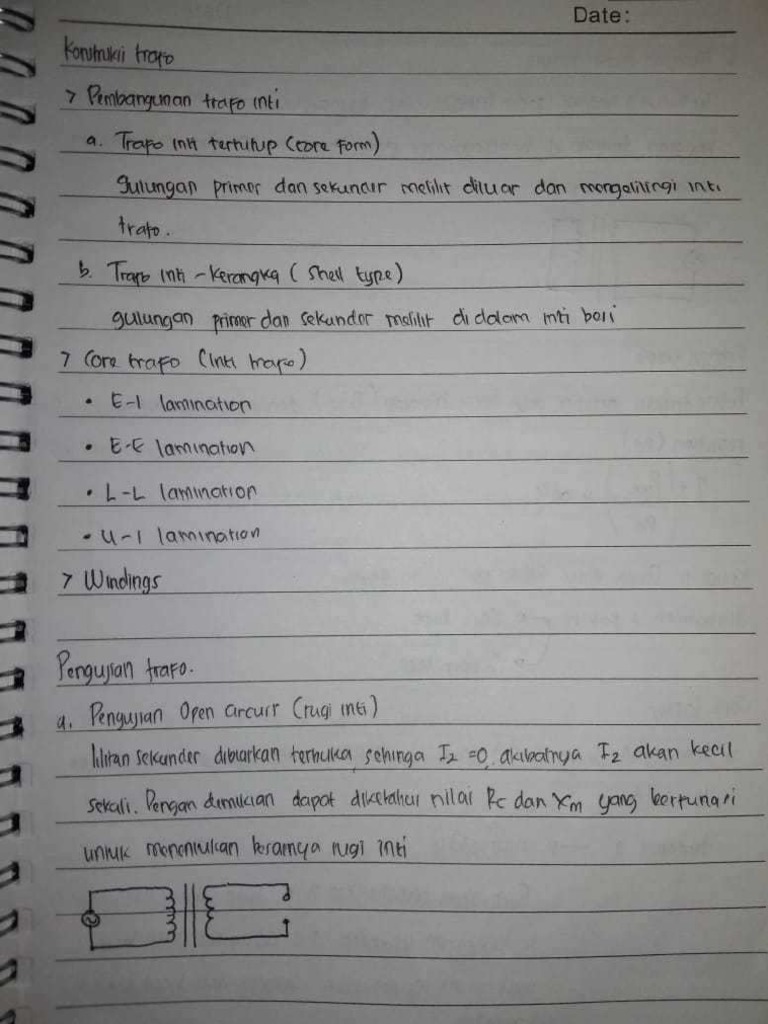 Date:
Konstruksi trafo
> Pembangunan trafo inti
a. Trafo inti tertutup (core form)
gulungan primer dan sekunder melilit diluar dan mengelilingi inti
trafo.
b. Trafo inti - kerangka (shell type)
gulungan primer dan sekunder melilit di dalam inti besi
> Core trafo (inti trafo)
• E-I lamination
• E-E lamination
• L-L lamination
• U-I lamination
> Windings
Pengujian trafo.
a. Pengujian Open Circuit (rugi inti)
lilitan sekunder dibiarkan terbuka, sehinga I2 =0, akibatnya I2 akan kecil
sekali. Dengan demikian dapat diketahui nilai Rc dan Xm yang berfungsi
untuk menentukan besarnya rugi inti